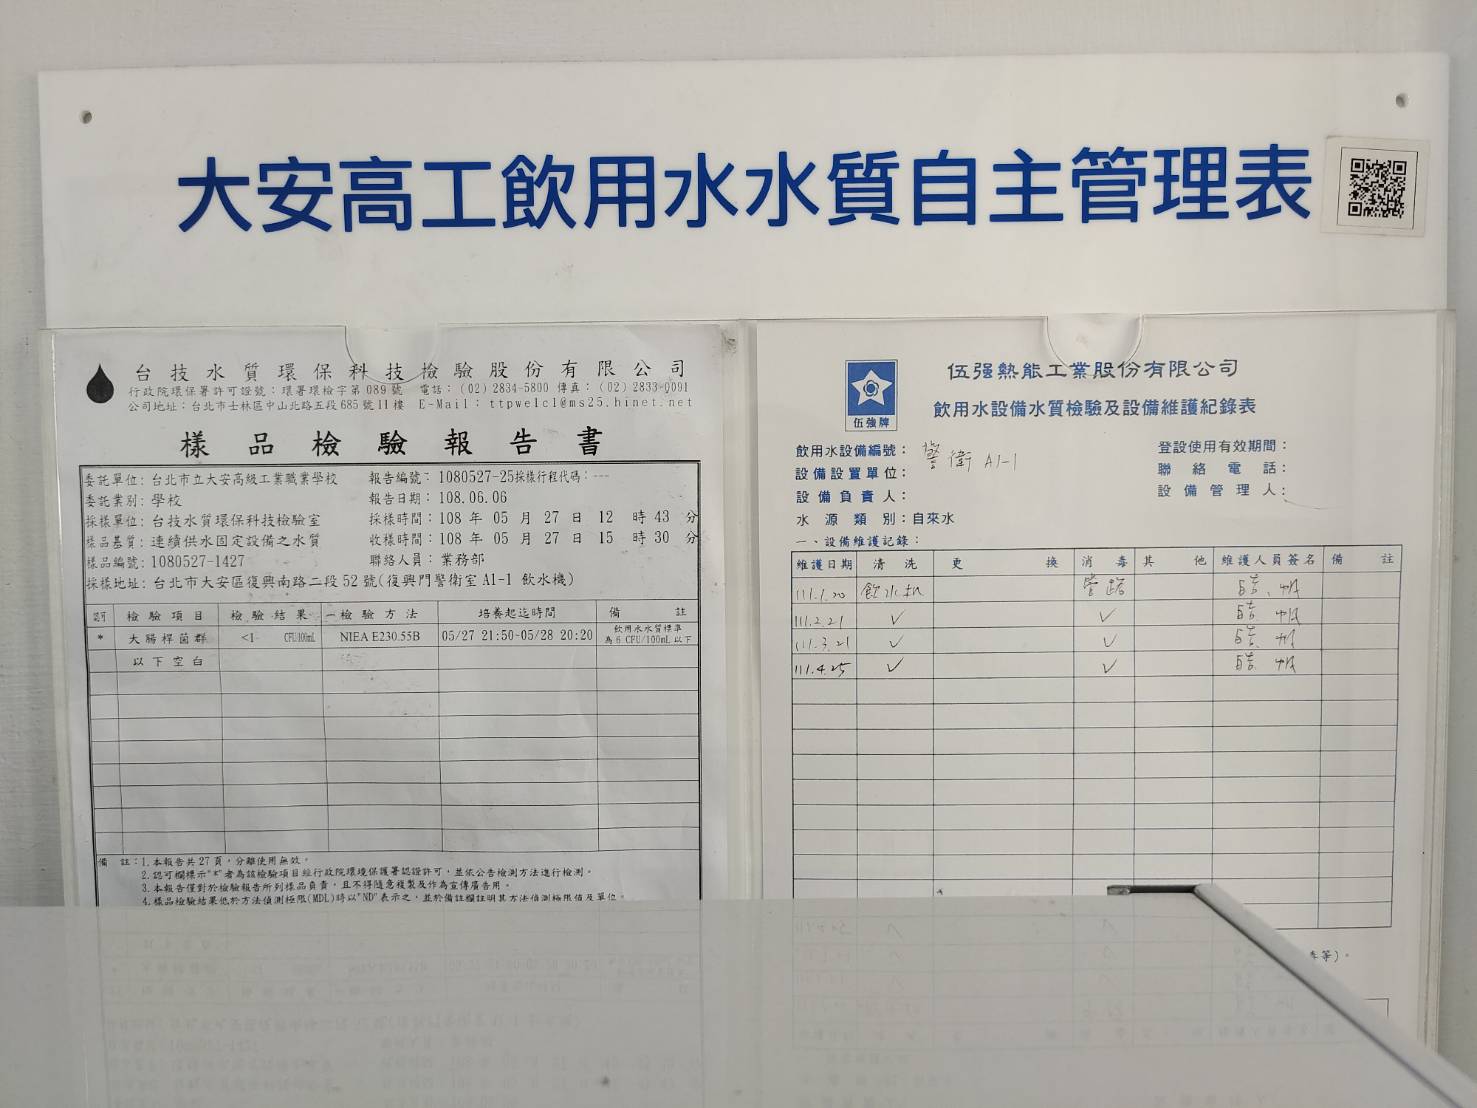 大安高工飲用水水質自主管理表
台技水質環保科技檢驗股份有限公司
行政院環保署許可證號：環署環檢字第089號 電話：(02)2834-5800 傳真：(02)2833-9091
公司地址：台北市士林區中山北路五段685號11樓 E-Mail：ttpwelcl@ms25.hinet.net
樣品檢驗報告書
委託單位：台北市立大安高級工業職業學校 報告編號：1080527-25採樣行程代碼：---
委託業別：學校 報告日期：108.06.06
採樣單位：台技水質環保科技檢驗室 採樣時間：108 年 05 月 27 日 12 時 43 分
樣品基質：連續供水固定設備之水質 收樣時間：108 年 05 月 27 日 15 時 30 分
樣品編號：1080527-1427 聯絡人員：業務部
採樣地址：台北市大安區復興南路二段52號(復興門警衛室A1-1飲水機)
檢驗項目 檢驗結果 檢驗方法 培養起迄時間 備註
* 大腸桿菌群 <1 CFU/100mL NIEA E230.55B 05/27 21:50-05/28 20:20 飲用水水質標準
為6 CFU/100mL以下
以下空白
備註：1.本報告共27頁，分離使用無效。
2.認可欄標示"*"者為該檢驗項目經行政院環境保護署認證許可，並依公告檢測方法進行檢測。
3.本報告僅對於檢驗報告所列樣品負責，且不得隨意複製及作為宣傳廣告用。
4.樣品檢驗結果低於方法偵測極限(MDL)時以"ND"表示之，並於備註欄註明其方法偵測極限值及單位。
伍強牌
伍强熱能工業股份有限公司
飲用水設備水質檢驗及設備維護紀錄表
飲用水設備編號：警衛 A1-1 登設使用有效期間：
設備設置單位： 聯絡電話：
設備負責人： 設備管理人：
水源類別：自來水
一、設備維護記錄：
維護日期 清洗 更換 消毒 其他 維護人員簽名 備註
111.1.20 飲水机 管路
111.2.21 ✓ ✓
111.3.21 ✓ ✓
111.4.25 ✓ ✓
等)。